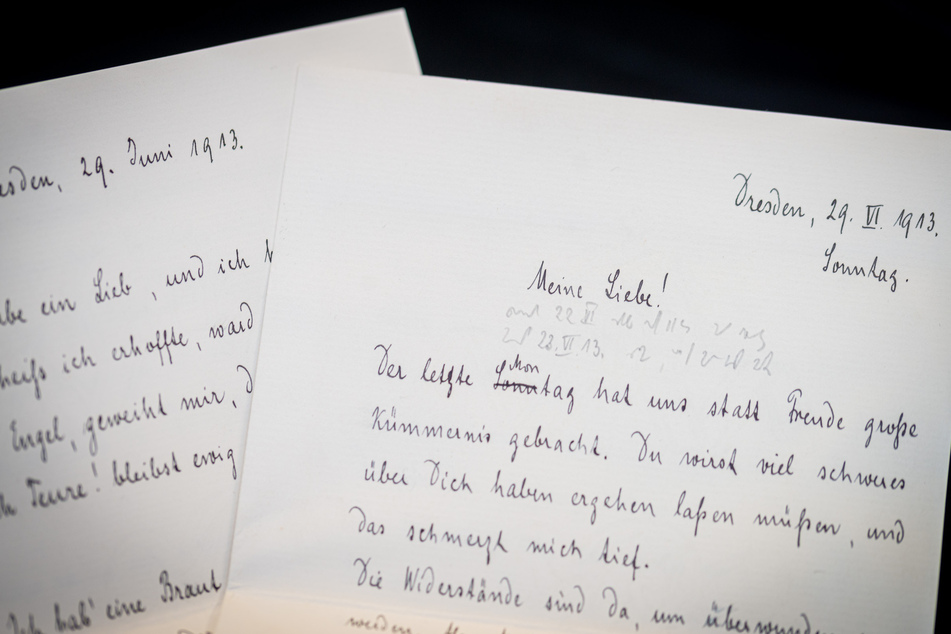 esden, 29. Juni 1913.
abe ein Lieb, und ich
heiß ich erhoffte, ward
Engel, geweiht mir, d
Teure! bleibst ewig
Ich hab' eine Braut
Dresden, 29. VI 1913.
Sonntag.
Meine Liebe!
22 VI
28. VI. 13.
Der letzte Sonntag Mon hat uns statt Freude große
Kümmernis gebracht. Du wirst viel schweres
über Dich haben ergehen laßen müßen, und
das schmerzt mich tief.
Die Widerstände sind da, um überwunde
werden